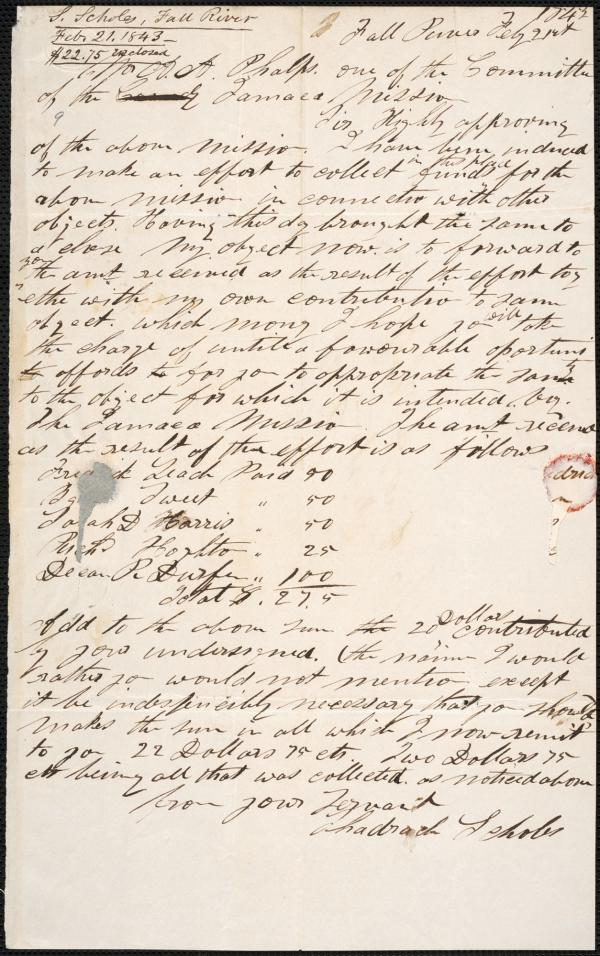 S. Scholes, Fall River
Feb. 21. 1843 -
$22.75 enclosed
1843
Fall River Feb 21st
To A. A. Phelps. one of the Committe
of the Jamaca Mission
Sir Highly approving
of the above mission. I have been induced
to make an effort to collect in this place funds for the
above mission in connectio with other
objects. Having this dy brought the same to
a close My object now is to forward to
you the amt received as the result of the effort tog
ethe with my own contributio to same
object. which mony I hope yo will take
the charge of untill a favourable oportuni
ty affords for yo to appropriate the same
to the object for which it is intended. by.
The Jamaca Mission. The amt receive
as the result of the effort is as follows
Leach Paid 50
Sweet " 50
Sarah D Harris " 50
Hoghto " 25
Decan Durfe " 100
Total $. 2.75
Add to the above sum the 20 Dollars contributed
by yours undersigned. (the name I would
rather yo would not mentio except
it be indespincibly necessary that yo should
makes the sum in all which I now remit
to yo 22 Dollars 75 cts. Two Dollars 75
cts being all that was collected. as noticed above
from yours Servant
Shadrach Scholes